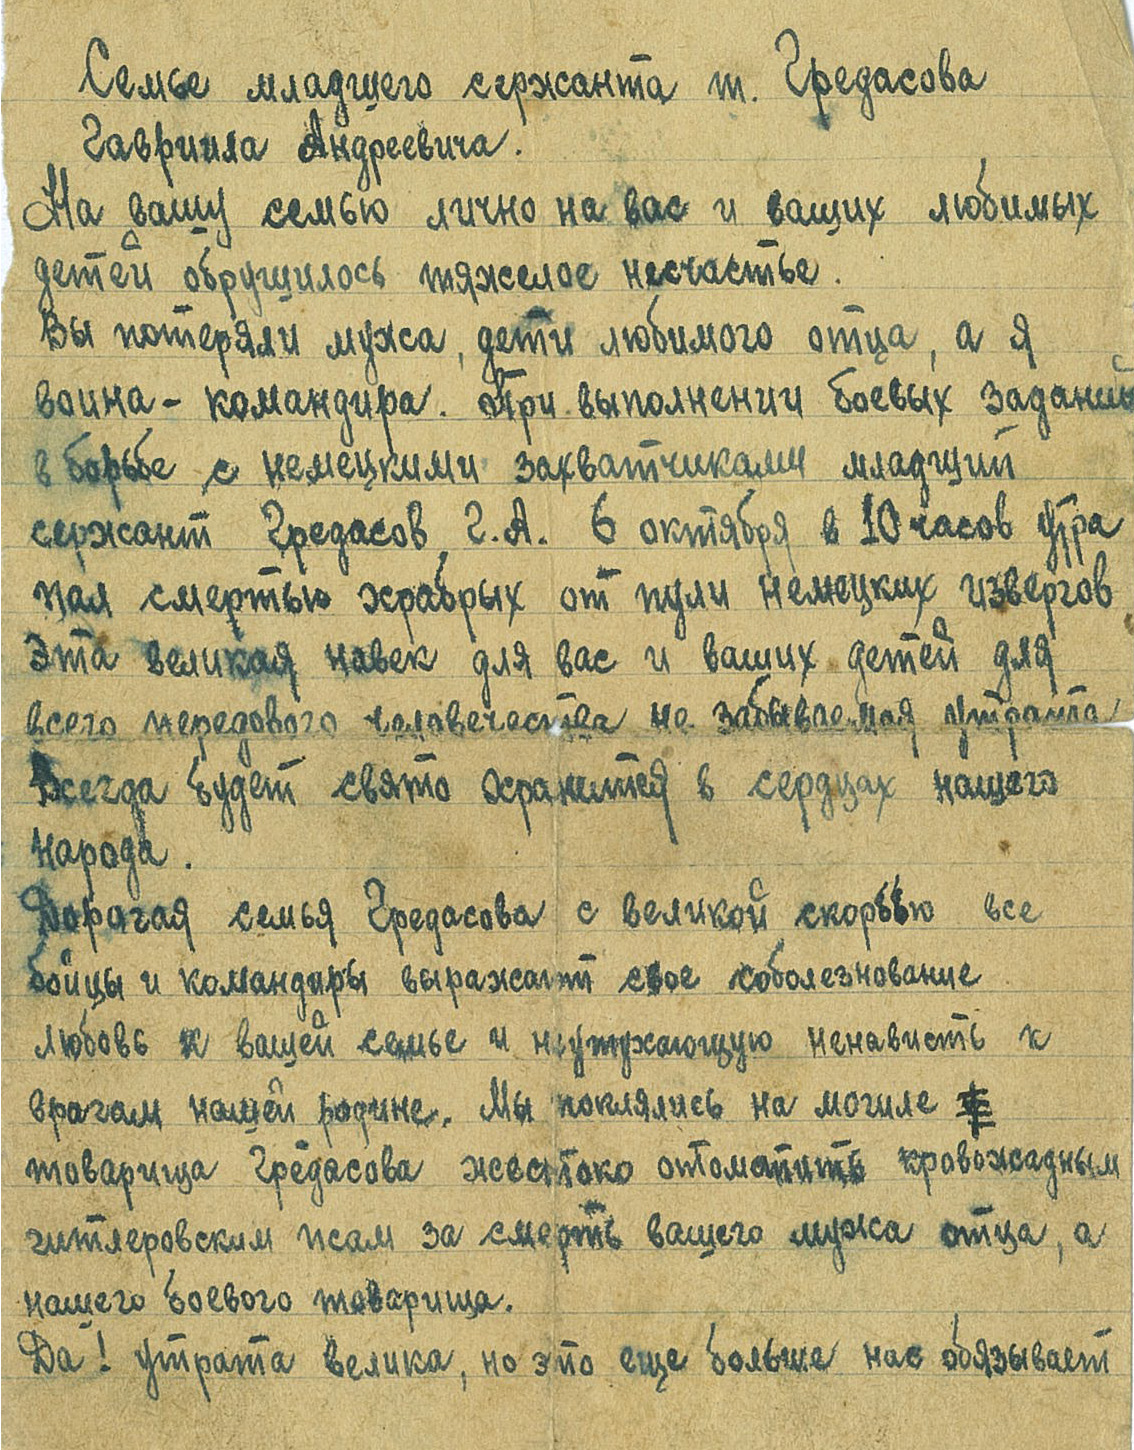 Семье младшего сержанта т. Гредасова
Гавриила Андреевича.
На вашу семью лично на вас и ваших любимых
детей обрушилось тяжелое несчастье.
Вы потеряли мужа, дети любимого отца, а я
воина - командира. При выполнении боевых заданий
в борьбе с немецкими захватчиками младший
сержант Гредасов Г.А. 6 октября в 10 часов утра
пал смертью храбрых от пули немецких извергов
Эта великая навек для вас и ваших детей для
всего передового человечества не забываемая утрата
Всегда будет свято хранится в сердцах нашего
народа.
Дорогая семья Гредасова с великой скорбью все
бойцы и командиры выражают свое соболезнование
любовь к вашей семье и неутужающую ненависть к
врагам нашей родине. Мы поклялись на могиле
товарища Гредасова жестоко отомстить кровожадным
гитлеровским псам за смерть вашего мужа отца, а
нашего боевого товарища.
Да! утрата велика, но это еще больше нас обязывает